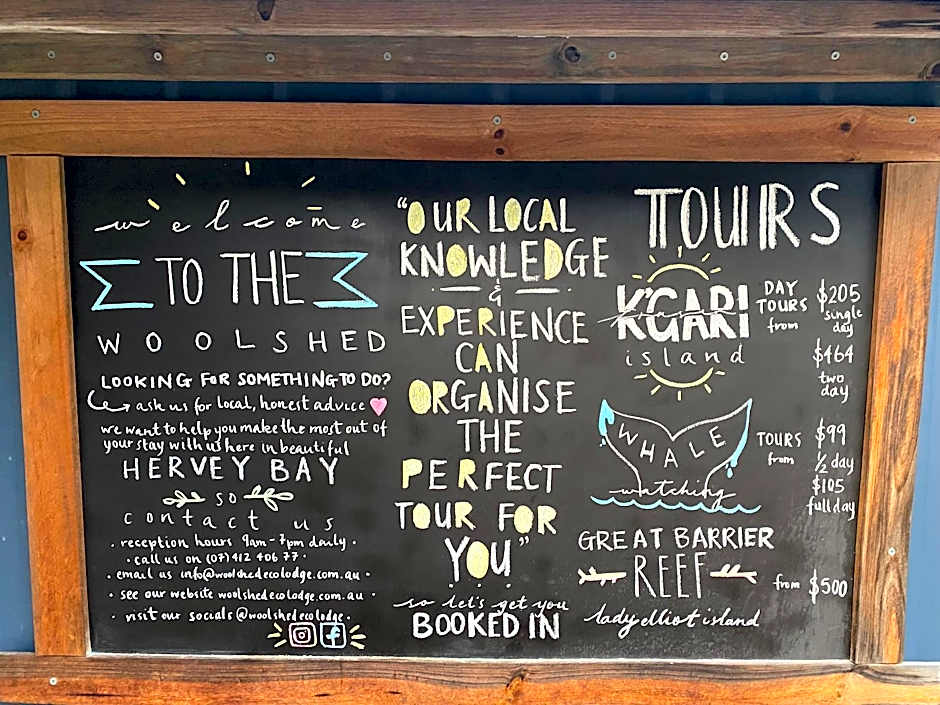 welcome
TO THE
WOOLSHED
LOOKING FOR SOMETHING TO DO?
ask us for local, honest advice
we want to help you make the most out of
your stay with us here in beautiful
HERVEY BAY
so
contact us
· reception hours 9am - 7pm daily ·
· call us on (07) 412 406 77 ·
· email us info@woolshedecolodge.com.au ·
· see our website woolshedecolodge.com.au ·
· visit our socials @woolshedecolodge ·
"OUR LOCAL
KNOWLEDGE
&
EXPERIENCE
CAN
ORGANISE
THE
PERFECT
TOUR FOR
YOU"
so let's get you
BOOKED IN
TOURS
K'GARI
island
DAY
TOURS
from
$205
single
day
$464
two
day
WHALE
watching
TOURS
from
$99
1/2 day
$105
full day
GREAT BARRIER
REEF
from $500
lady elliot island